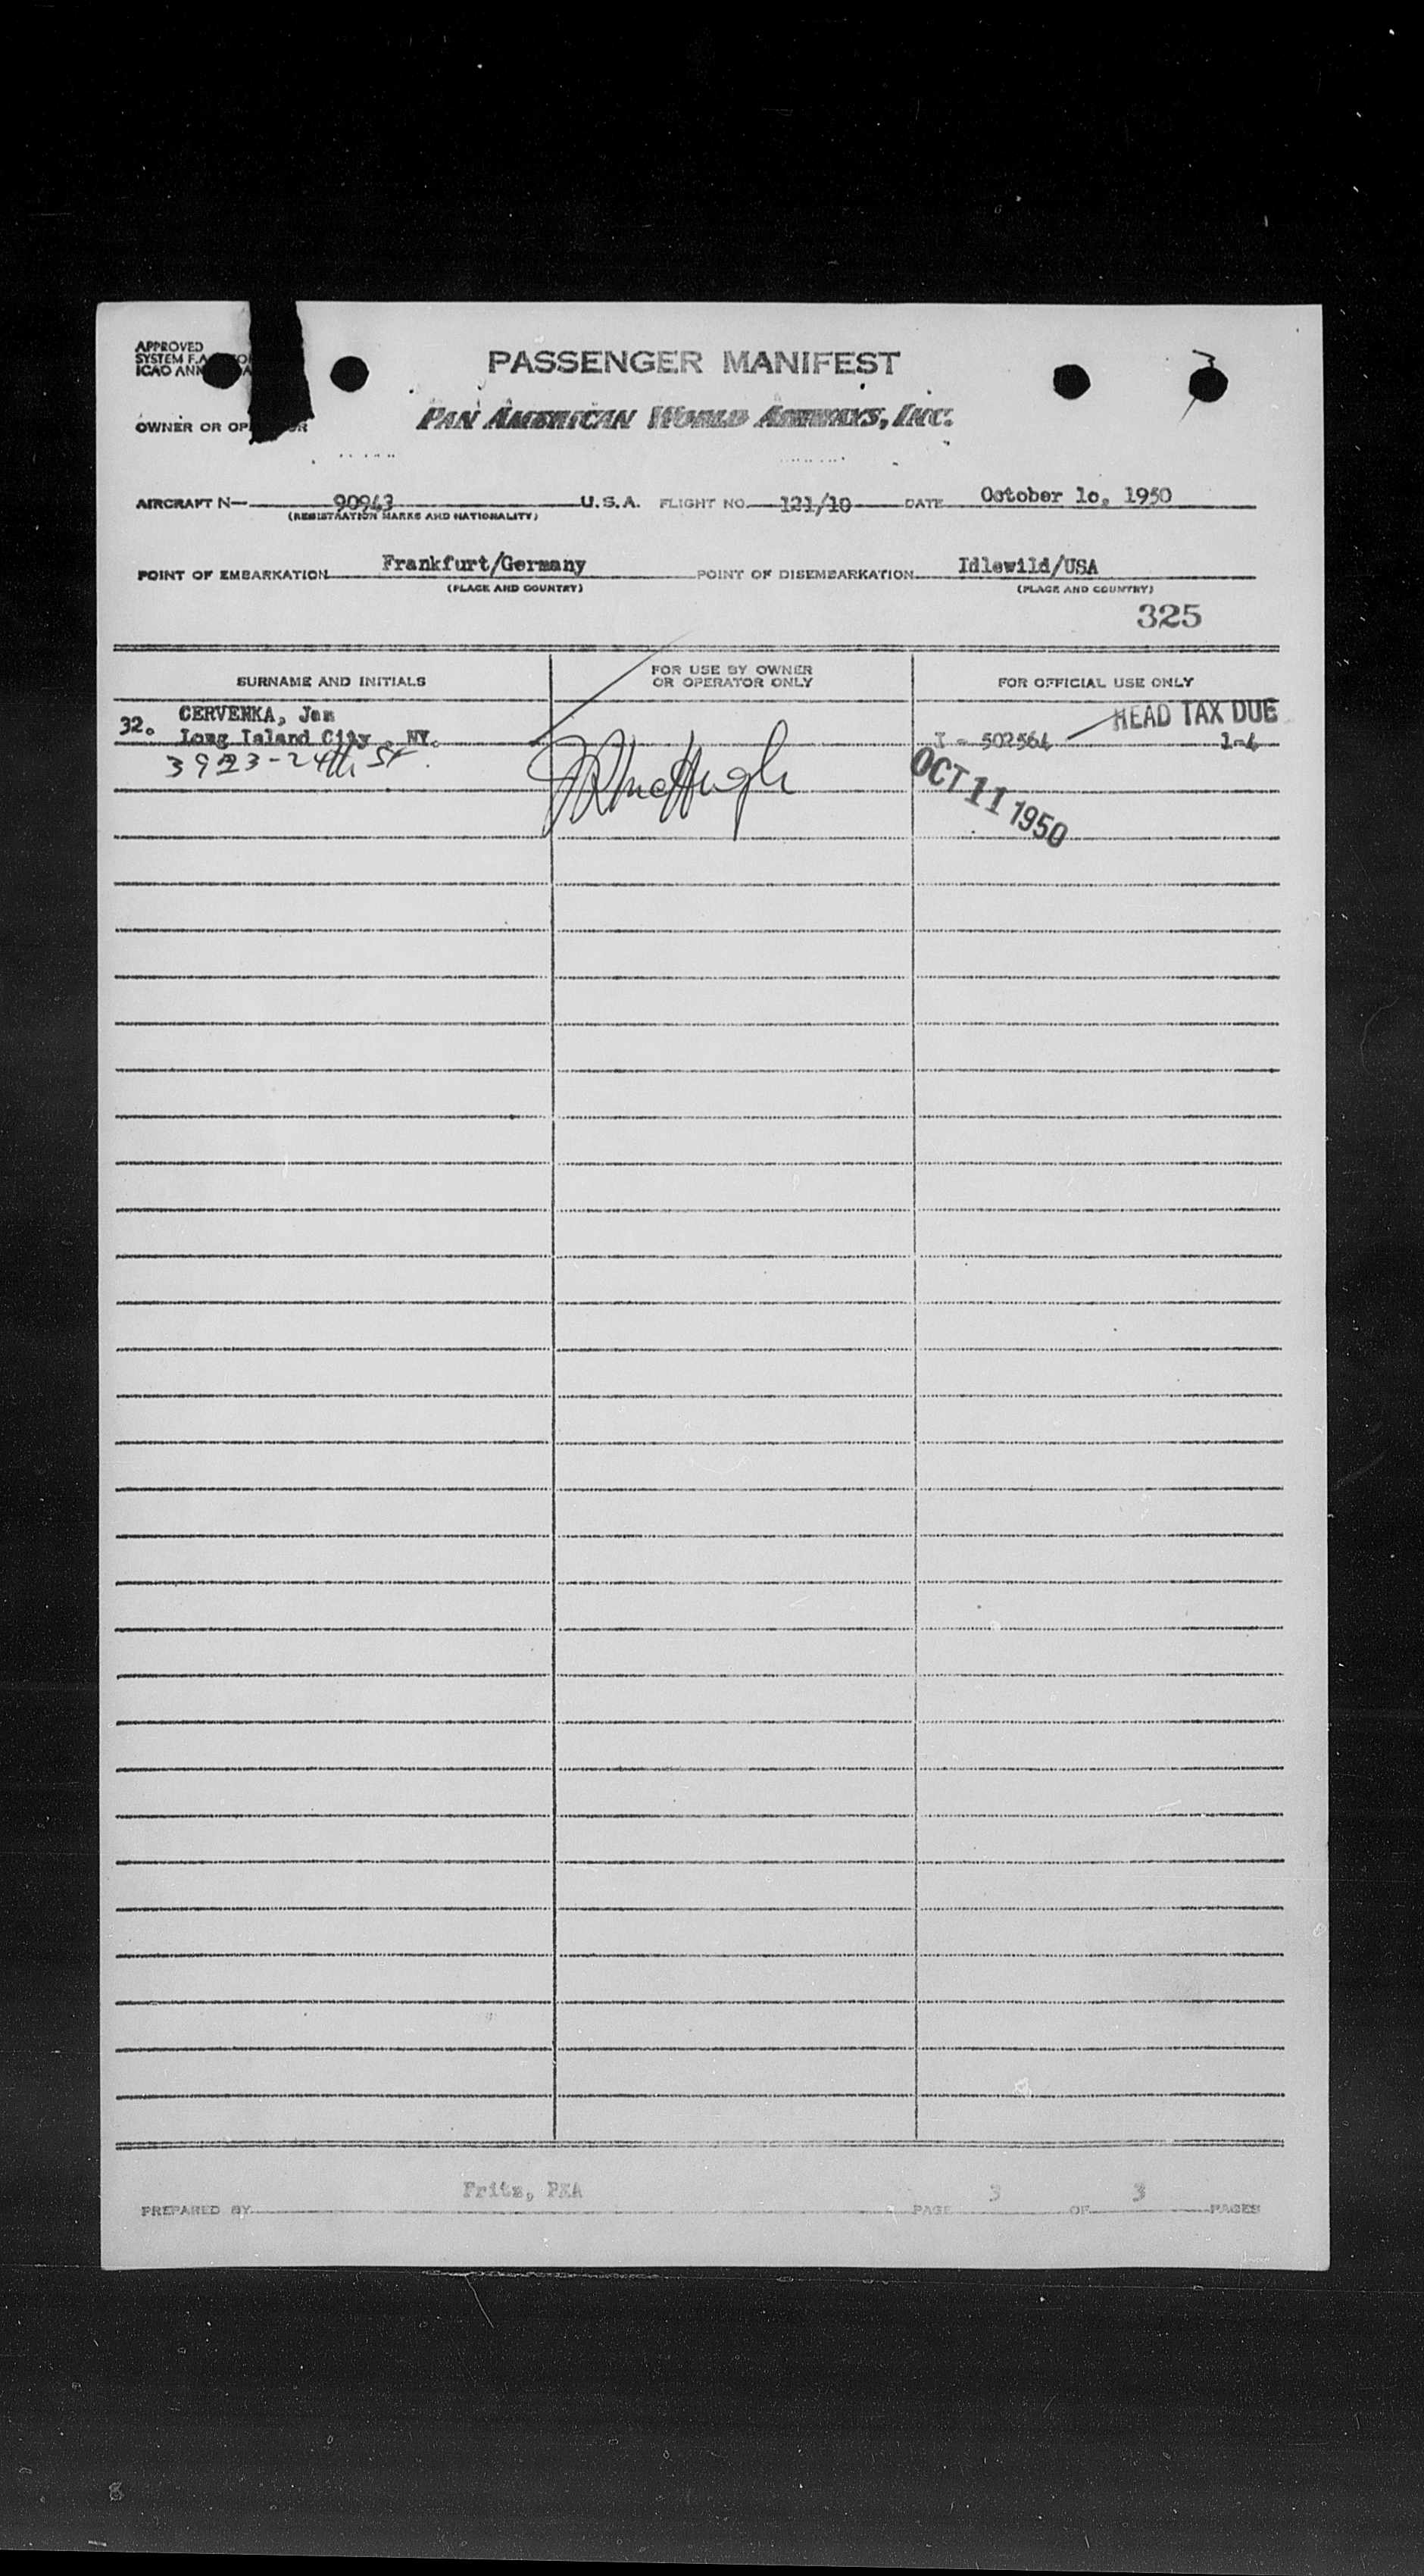 APPROVED
SYSTEM F.A
ICAO ANN
PASSENGER MANIFEST
3
OWNER OR OP
PAN AMERICAN WORLD AIRWAYS, INC.
AIRCRAFT N— 90943 U.S.A. FLIGHT NO. 121/10 DATE October 1o, 1950
(REGISTRATION MARKS AND NATIONALITY)
POINT OF EMBARKATION Frankfurt/Germany POINT OF DISEMBARKATION Idlewild/USA
(PLACE AND COUNTRY) (PLACE AND COUNTRY)
325
SURNAME AND INITIALS FOR USE BY OWNER
OR OPERATOR ONLY FOR OFFICIAL USE ONLY
32. CERVENKA, Jan HEAD TAX DUE
Long Island City, NY. I - 502564 1-4
3923-24th St.
OCT 11 1950
PREPARED BY Fritz, PAA PAGE 3 OF 3 PAGES